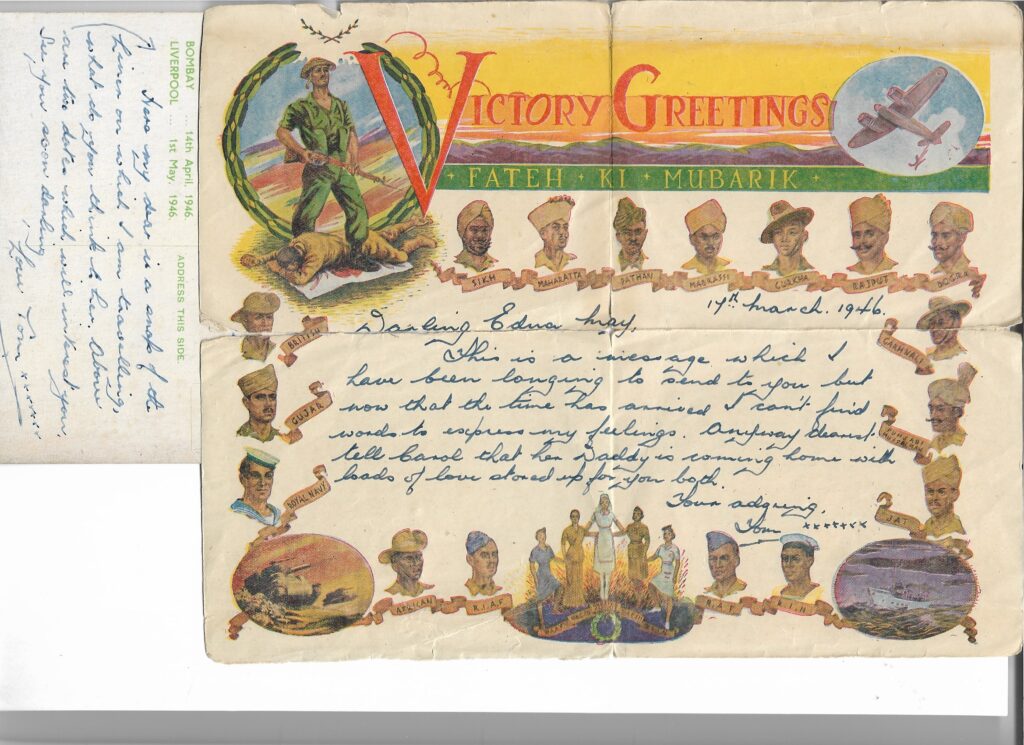 VICTORY GREETINGS
FATEH · KI · MUBARIK
SIKH
MAHARATTA
PATHAN
MADRASSI
GURKHA
RAJPUT
DOGRA
17th March. 1946.
Darling Edna May,
This is a message which I
have been longing to send to you but
now that the time has arrived I can't find
words to express my feelings. Anyway dearest
tell Carol that her Daddy is coming home with
loads of love stored up for you both.
Your adoring,
Tom xxxxxxx
BRITISH
GUJAR
ROYAL NAVY
GARHWALI
JAT
AFRICAN
R.I.A.F
R.A.F
R.I.N
BOMBAY .... 14th April. 1946.
LIVERPOOL .... 1st May. 1946.
ADDRESS THIS SIDE
Here my dear is a snap of the
liner on which I am travelling,
what do you think to her. Above
are the dates which will interest you,
See you soon darling
Love Tom xxxxxx